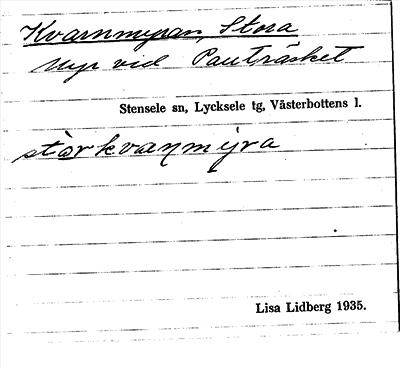 Kvarnmyran, Stora
Myr vid Pauträsket
Stensele sn, Lycksele tg, Västerbottens l.
stòrkvaṇmy̨ra
Lisa Lidberg 1935.